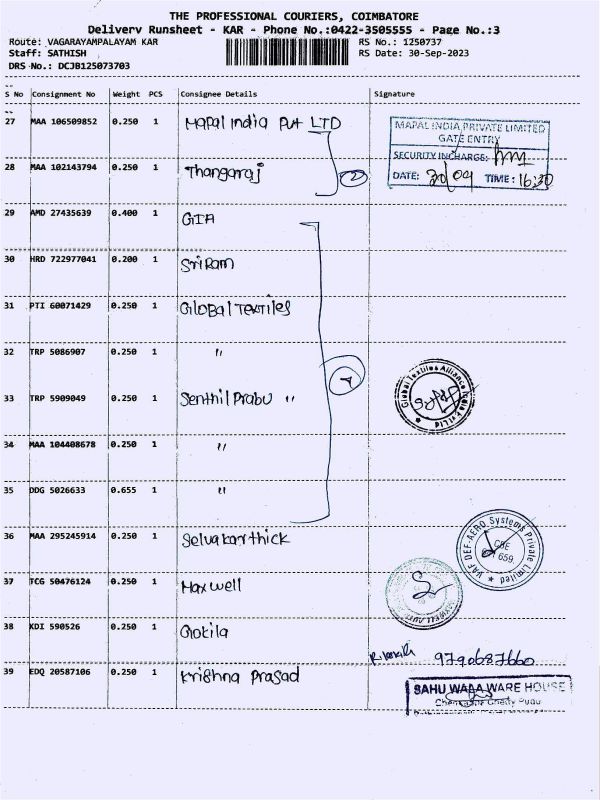 THE PROFESSIONAL COURIERS, COIMBATORE
Delivery Runsheet - KAR - Phone No.:0422-3505555 - Page No.:3
Route: VAGARAYAMPALAYAM KAR
RS No.: 1250737
Staff: SATHISH
RS Date: 30-Sep-2023
DRS No.: DCJB125073703
S No Consignment No Weight PCS Consignee Details Signature
27 MAA 106509852 0.250 1 Mapal India Pvt LTD
MAPAL INDIA PRIVATE LIMITED
GATE ENTRY
SECURITY INCHARGE:
DATE: 30/09 TIME: 16:30
28 MAA 102143794 0.250 1 Thangaraj
2
29 AMD 27435639 0.400 1 GTA
30 HRD 722977041 0.200 1 Sri Ram
31 PTI 60071429 0.250 1 Global Textiles
32 TRP 5086907 0.250 1 "
7
33 TRP 5909049 0.250 1 Senthil Prabu "
Global Textiles Alliance India Pvt Ltd
34 MAA 104408678 0.250 1 "
35 DDG 5026633 0.655 1 "
36 MAA 295245914 0.250 1 Selvakarthick
VAF DEF-AERO Systems Private Limited
CBE
641 659.
37 TCG 50476124 0.250 1 Maxwell
38 KDI 590526 0.250 1 Gokila
9790687660
39 EDQ 20587106 0.250 1 Krishna Prasad
SAHU WARE HOUSE